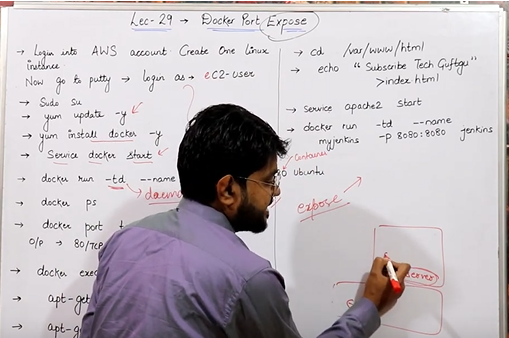 Lec-29 → Docker Port Expose
→ Login into AWS account. Create One Linux
instance
Now go to putty → login as → ec2-user
→ Sudo su
→ yum update -y
→ yum install docker -y
→ Service docker start
→ docker run -td --name
→ docker ps
→ docker port t
O/P → 80/TCP
→ docker exec
→ apt-get
→ apt-g
→ cd /var/www/html
→ echo "Subscribe Tech Guftgu"
>index.html
→ Service apache2 start
→ docker run -td --name
myjenkins -P 8080:8080 jenkins
Container
ubuntu
expose
server